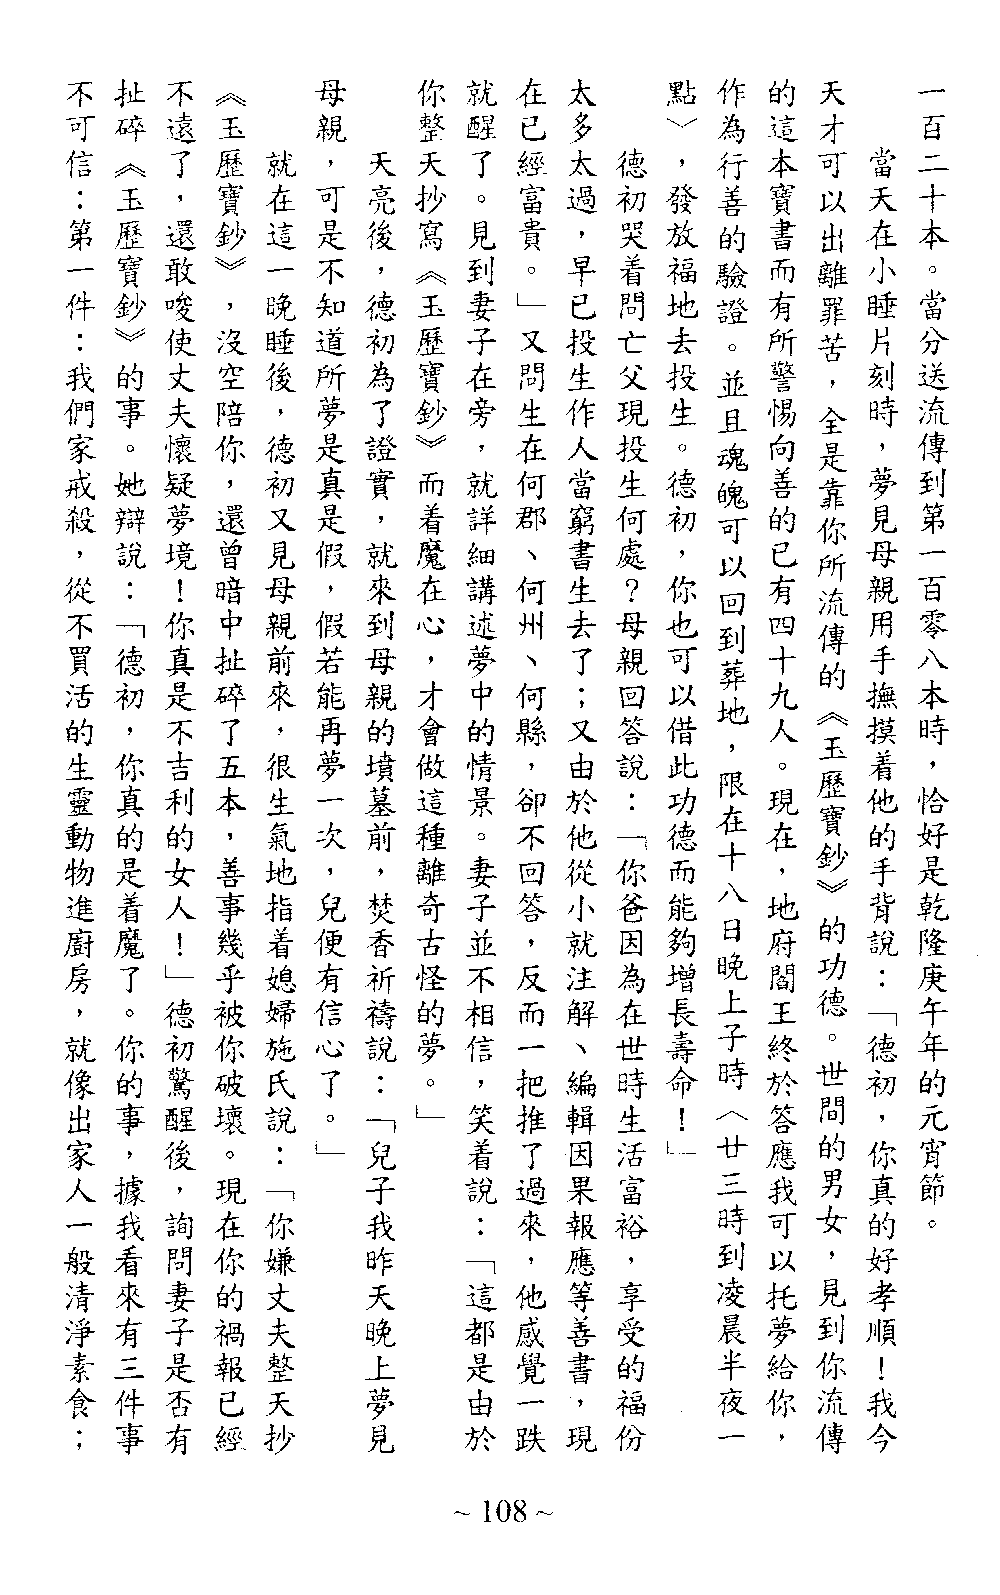 一百二十本。當分送流傳到第一百零八本時，恰好是乾隆庚午年的元宵節。
當天在小睡片刻時，夢見母親用手撫摸着他的手背說：「德初，你真的好孝順！我今
天才可以出離罪苦，全是靠你所流傳的《玉歷寶鈔》的功德。世間的男女，見到你流傳
的這本寶書而有所警惕向善的已有四十九人。現在，地府閻王終於答應我可以托夢給你，
作為行善的驗證。並且魂魄可以回到葬地，限在十八日晚上子時〈廿三時到凌晨半夜一
點〉，發放福地去投生。德初，你也可以借此功德而能夠增長壽命！」
德初哭着問亡父現投生何處？母親回答說：「你爸因為在世時生活富裕，享受的福份
太多太過，早已投生作人當窮書生去了；又由於他從小就注解、編輯因果報應等善書，現
在已經富貴。」又問生在何郡、何州、何縣，卻不回答，反而一把推了過來，他感覺一跌
就醒了。見到妻子在旁，就詳細講述夢中的情景。妻子並不相信，笑着說：「這都是由於
你整天抄寫《玉歷寶鈔》而着魔在心，才會做這種離奇古怪的夢。」
天亮後，德初為了證實，就來到母親的墳墓前，焚香祈禱說：「兒子我昨天晚上夢見
母親，可是不知道所夢是真是假，假若能再夢一次，兒便有信心了。」
就在這一晚睡後，德初又見母親前來，很生氣地指着媳婦施氏說：「你嫌丈夫整天抄
《玉歷寶鈔》，沒空陪你，還曾暗中扯碎了五本，善事幾乎被你破壞。現在你的禍報已經
不遠了，還敢唆使丈夫懷疑夢境！你真是不吉利的女人！」德初驚醒後，詢問妻子是否有
扯碎《玉歷寶鈔》的事。她辯說：「德初，你真的是着魔了。你的事，據我看來有三件事
不可信：第一件：我們家戒殺，從不買活的生靈動物進廚房，就像出家人一般清淨素食；
~ 108 ~